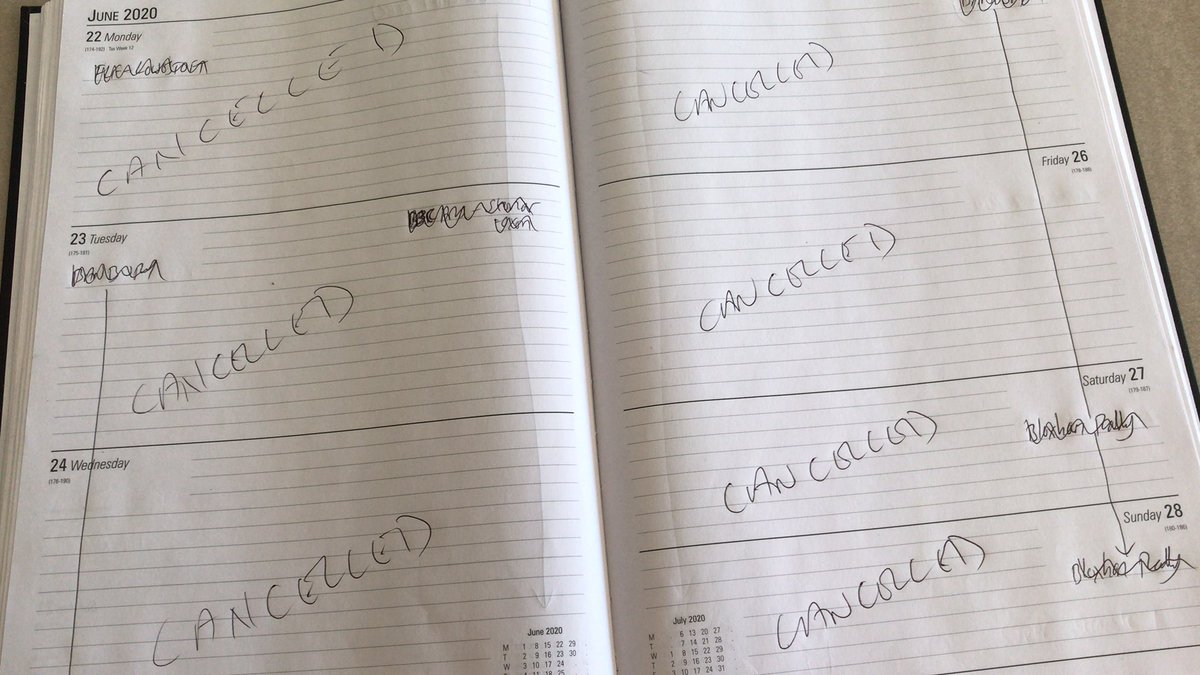 JUNE 2020
22 Monday
(174-192) Tax Week 12
CANCELLED
23 Tuesday
(175-191)
CANCELLED
24 Wednesday
(176-190)
CANCELLED
June 2020
M 1 8 15 22 29
T 2 9 16 23 30
W 3 10 17 24
T 4 11 18 25
CANCELLED
Friday 26
(178-188)
CANCELLED
Saturday 27
(179-187)
Bloxham Rally
CANCELLED
Sunday 28
(180-186)
Bloxham Rally
CANCELLED
July 2020
M 6 13 20 27
T 7 14 21 28
W 1 8 15 22 29
T 2 9 16 23 30